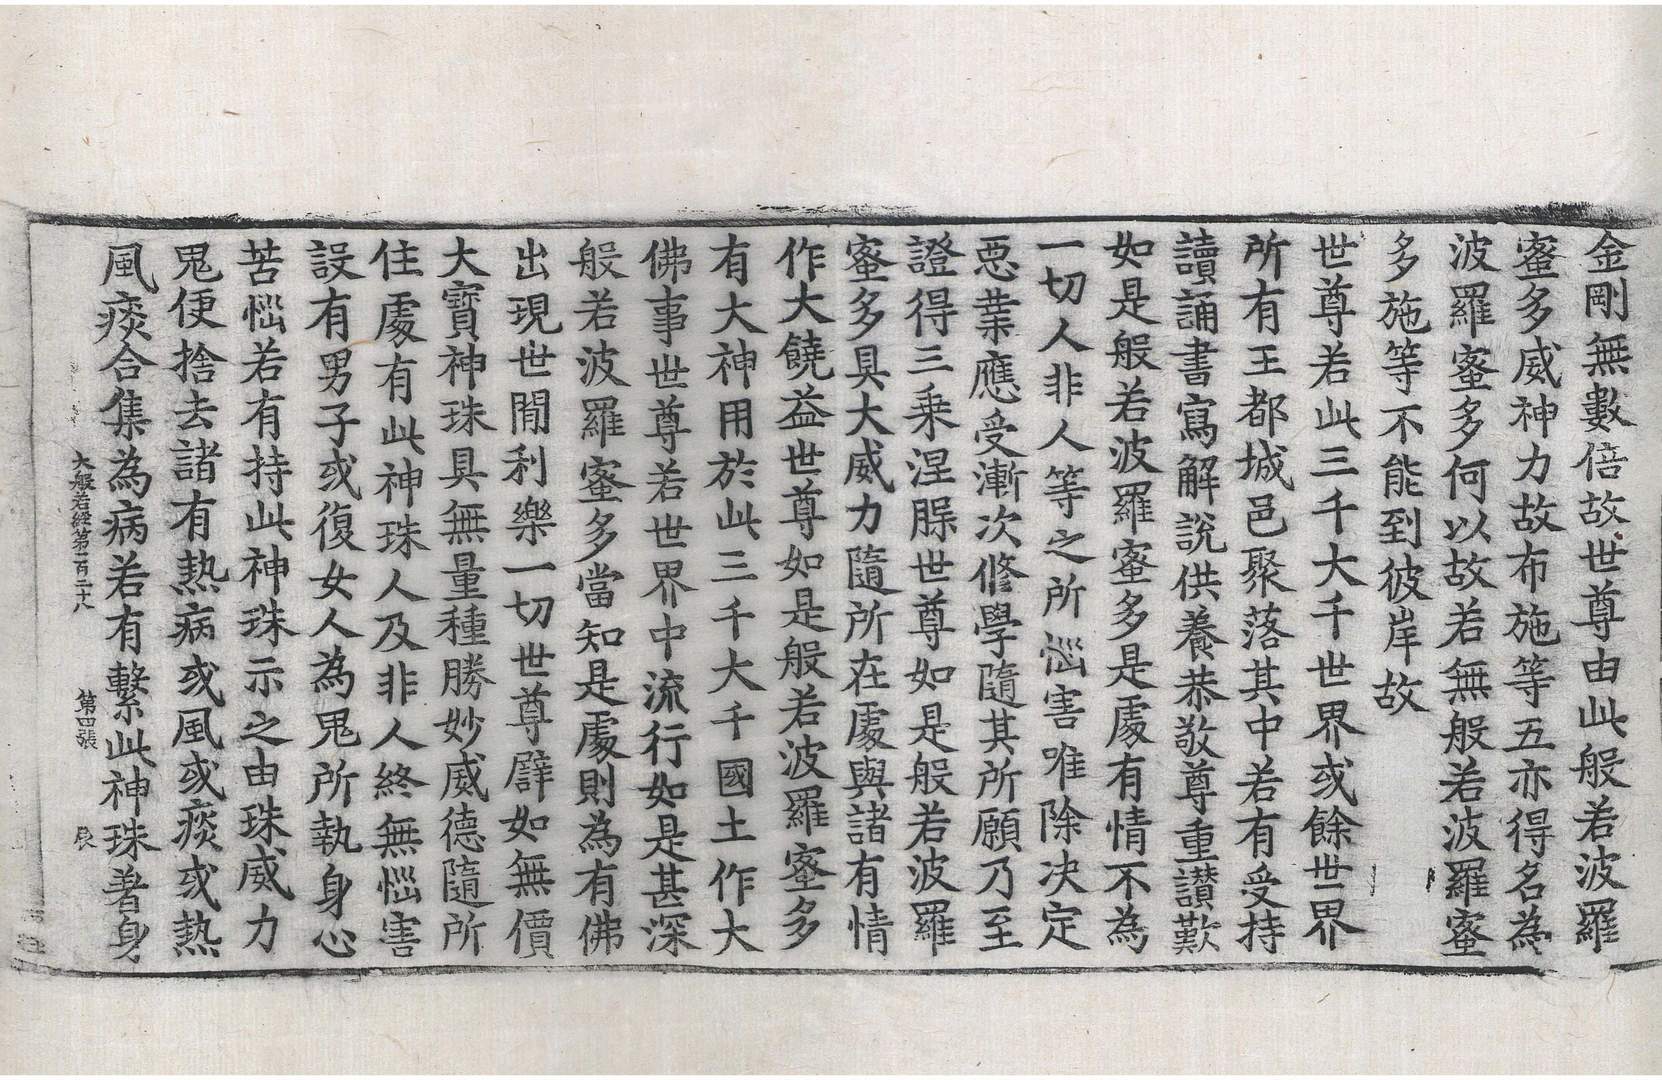 金剛無數倍故世尊由此般若波羅
蜜多威神力故布施等五亦得名為
波羅蜜多何以故若無般若波羅蜜
多施等不能到彼岸故
世尊若此三千大千世界或餘世界
所有王都城邑聚落其中若有受持
讀誦書寫解說供養恭敬尊重讚歎
如是般若波羅蜜多是處有情不為
一切人非人等之所惱害唯除決定
惡業應受漸次修學隨其所願乃至
證得三乘涅槃世尊如是般若波羅
蜜多具大威力隨所在處與諸有情
作大饒益世尊如是般若波羅蜜多
有大神用於此三千大千國土作大
佛事世尊若世界中流行如是甚深
般若波羅蜜多當知是處則為有佛
出現世間利樂一切世尊譬如無價
大寶神珠具無量種勝妙威德隨所
住處有此神珠人及非人終無惱害
設有男子或復女人為鬼所執身心
苦惱若有持此神珠示之由珠威力
鬼便捨去諸有熱病或風或痰或熱
風痰合集為病若有繫此神珠著身
大般若經第一百二十八 第四張 辰